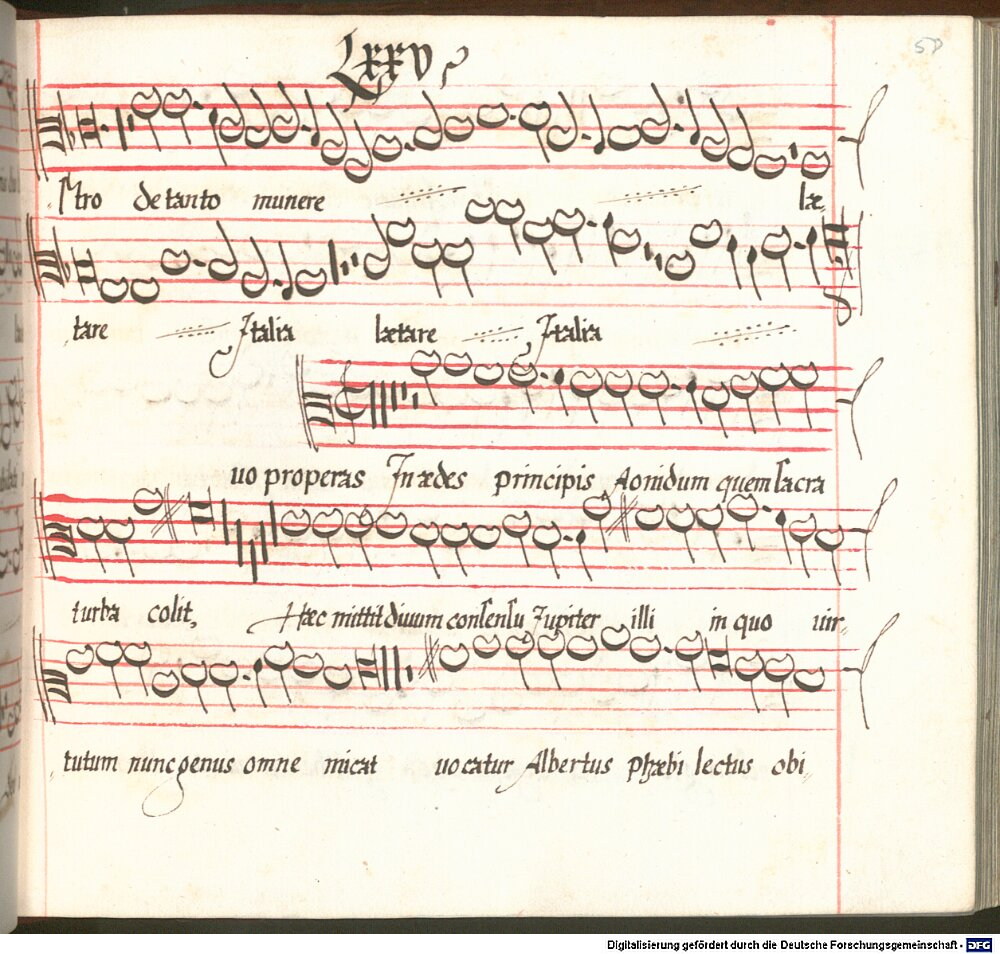 Lxxv
50
stro de tanto munere læ-
tare Italia lætare Italia
uo properas In ædes principis Aonidum quem sacra
turba colit, Hæc mittit diuum consensu Jupiter illi in quo uir-
tutum nunc genus omne micat uocatur Albertus phæbi lectus obi-
Digitalisierung gefördert durch die Deutsche Forschungsgemeinschaft - DFG